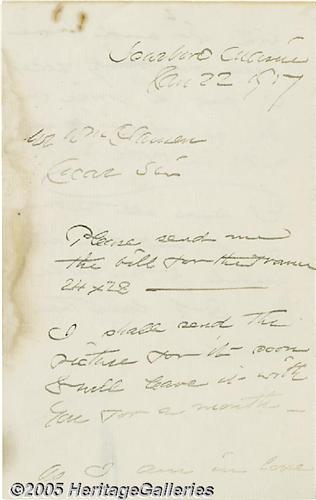 Scarboro Maine
Jan 22
Mr Wm
Dear Sir
Please send me
the bill for the frame
24 x 28
I shall send the
picture for it soon
& will leave it with
you for a month
as I am in love
©2005 HeritageGalleries